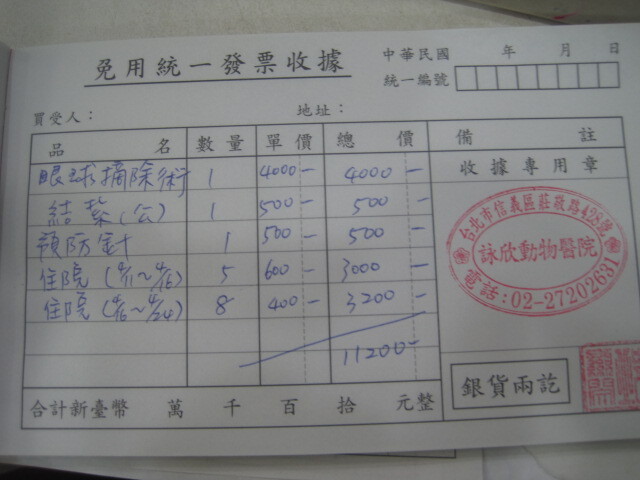 免用統一發票收據
中華民國 年 月 日
統一編號
買受人： 地址：
品 名 數量 單價 總 價 備 註
眼球摘除術 1 4000- 4000-
收據專用章
結紮(公) 1 500- 500-
預防針 1 500- 500-
住院(4/11~4/16) 5 600- 3000-
住院(4/16~4/24) 8 400- 3200-
11200-
台北市信義區莊敬路428號
詠欣動物醫院
電話:02-27202631
銀貨兩訖
合計新臺幣 萬 千 百 拾 元整